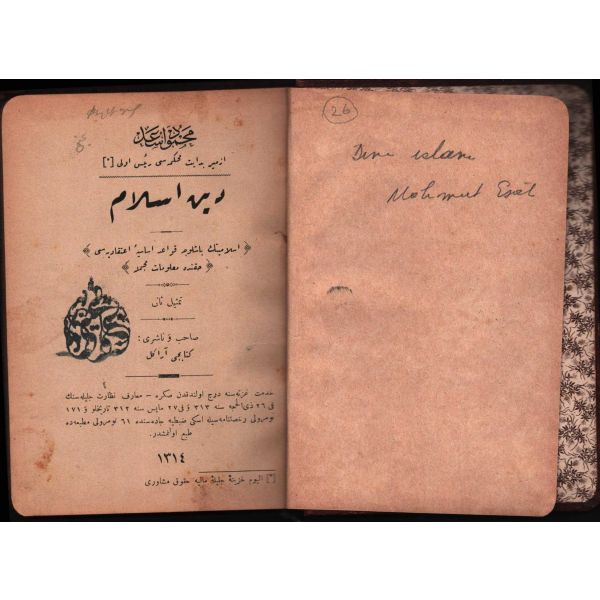 محمود اسعد
ازمیر بدایت محکمه سی رئیس اولی [*]
دین اسلام
﴿ اسلامیتك باشلوجه قواعد اساسیهٔ اعتقادیه سی ﴾
﴿ حقنده معلومات مجمله ﴾
تمثیل ثانی
صاحب و ناشری :
کتابجی آراکل
خدمت غزته سنه درج اولندقدن صکره – معارف نظارت جلیله سنك
فی ٢٦ ذی الحجه سنه ٣١٣ و فی ٢٧ مایس سنه ٣١٢ تاریخلو و ١٧١
نومرولی رخصتنامه سیله اسکی ضبطیه جاده سنده ٦١ نومرولی مطبعه ده
طبع اولنمشدر.
١٣١٤
[*] الیوم خزینهٔ جلیلهٔ مالیه حقوق مشاوری
26
Dini islam
Mahmut Esat